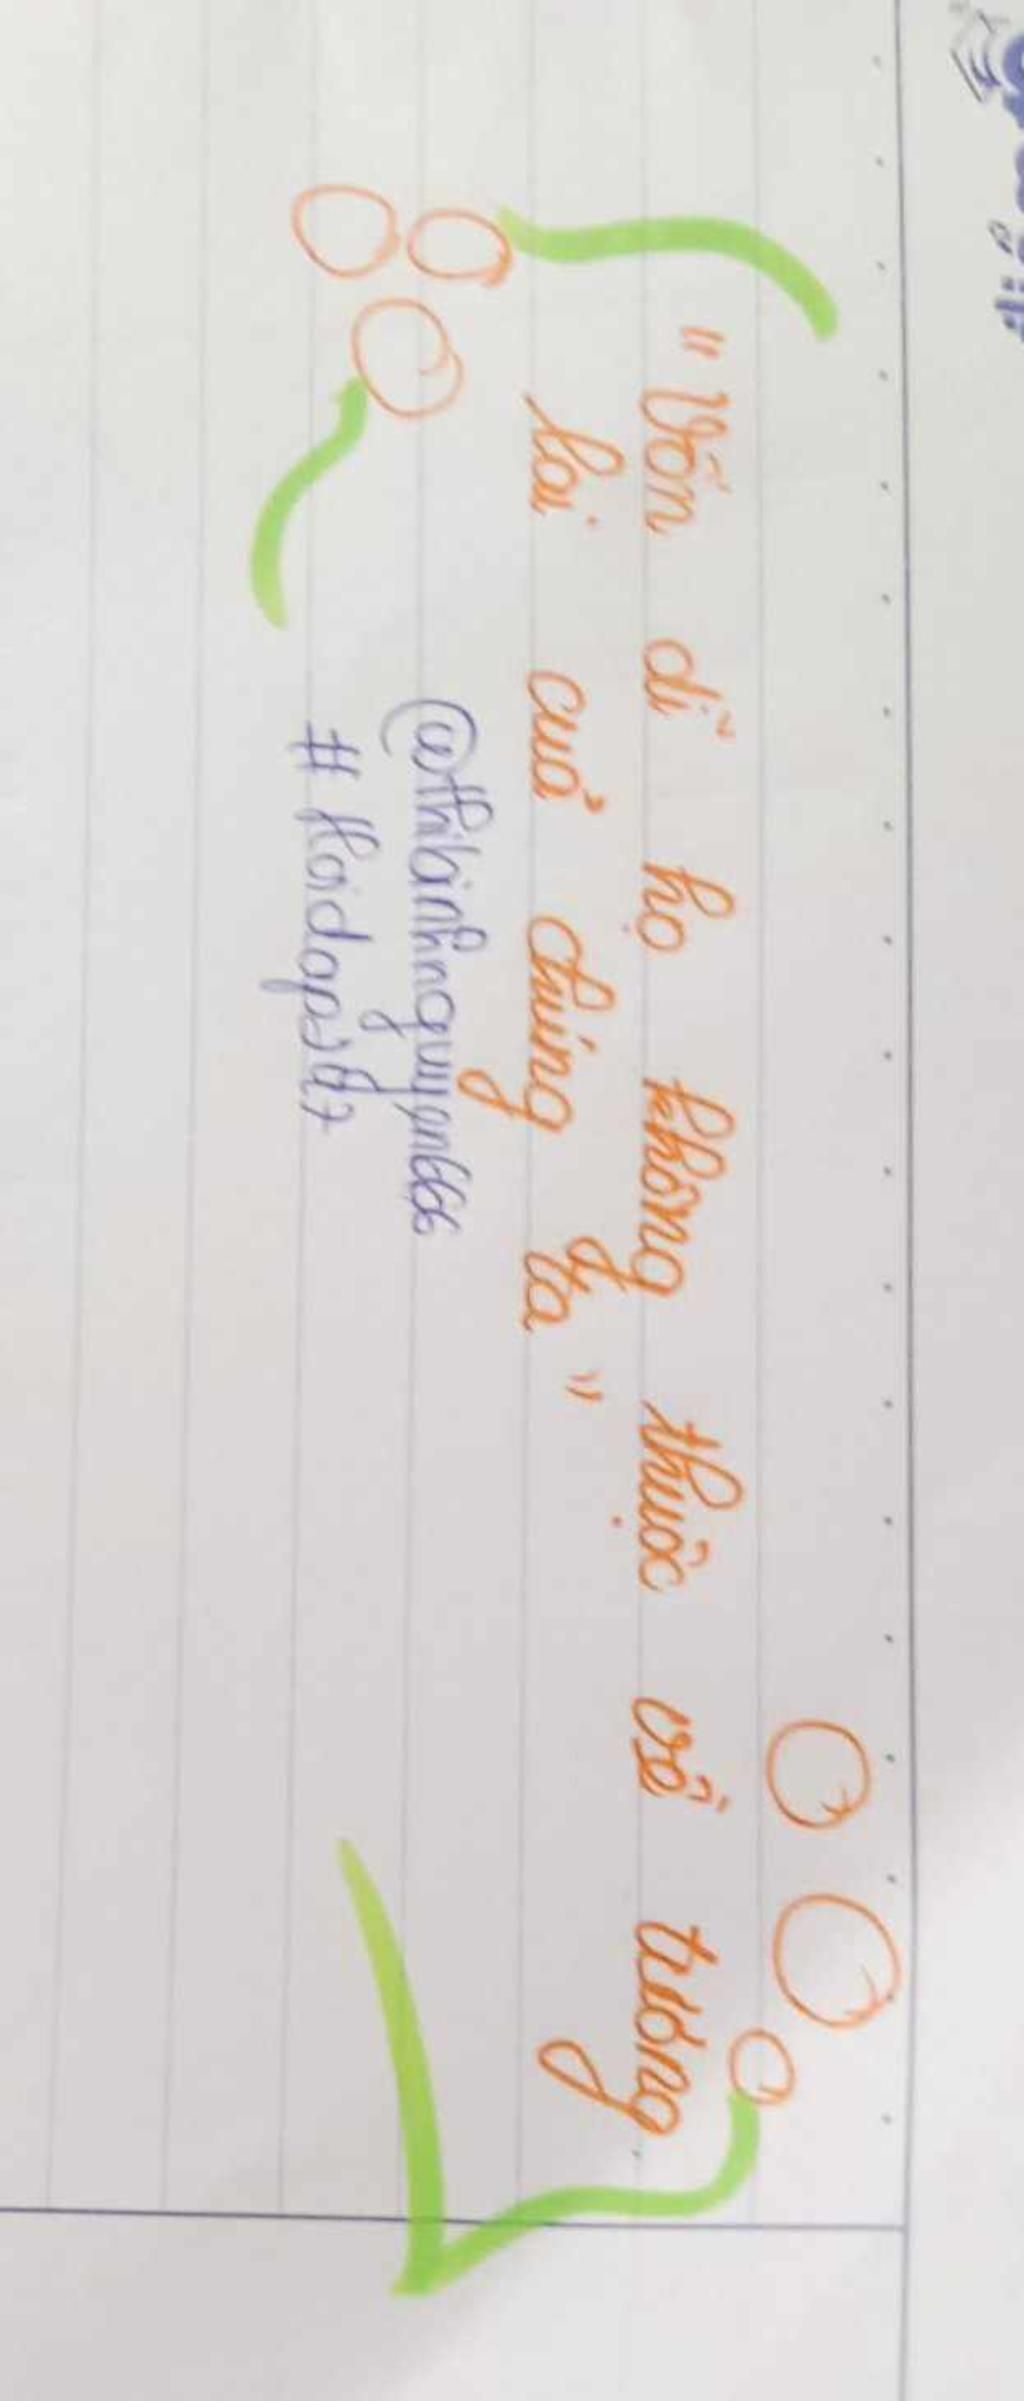 "Vốn dĩ họ không thuộc về tương
lai của chúng ta"
@thibinhnguyen666
#hoidap247